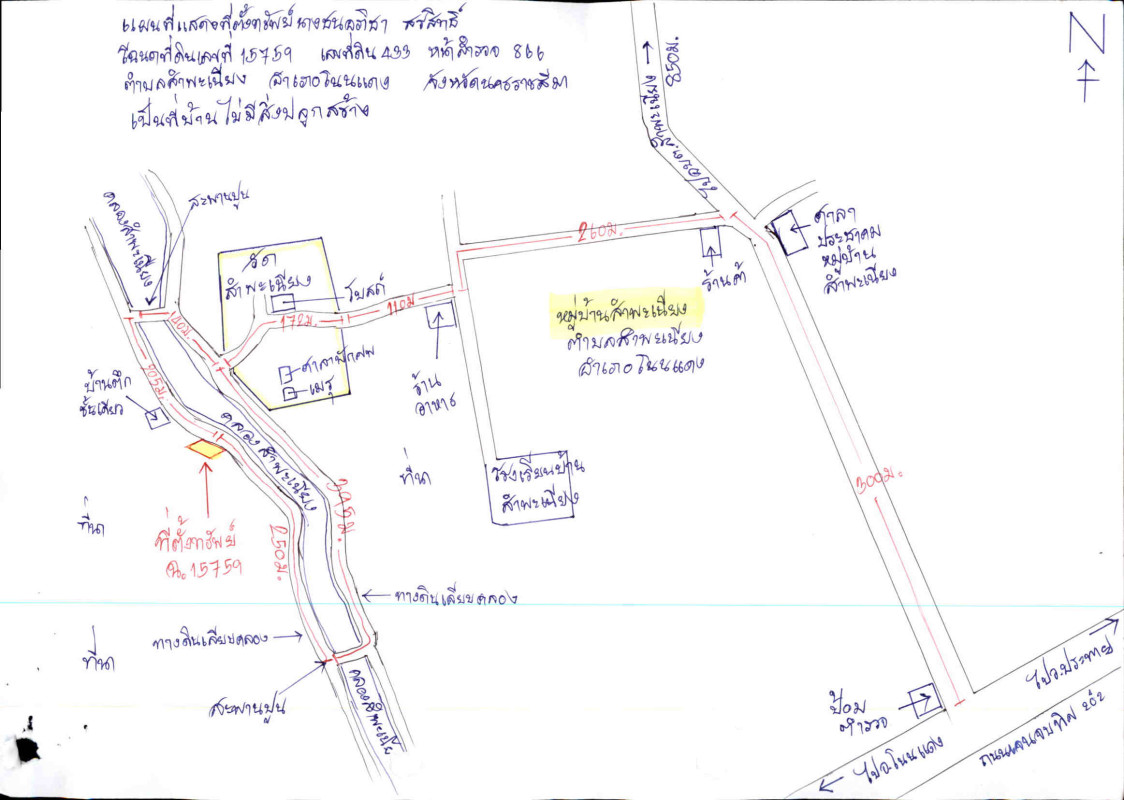 แผนที่แสดงที่ตั้งทรัพย์ นาง
โฉนดที่ดินเลขที่ 15759 เลขที่ดิน 433 หน้าสำรวจ 866
ตำบลสำพะเนียง อำเภอโนนแดง จังหวัดนครราชสีมา
เป็นที่บ้าน ไม่มีสิ่งปลูกสร้าง
N
850ม.
ศาลา
ประชาคม
หมู่บ้าน
สำพะเนียง
สะพานปูน
คลองสำพะเนียง
260ม.
ร้านค้า
วัด
สำพะเนียง
โบสถ์
172ม.
110ม.
140ม.
หมู่บ้านสำพะเนียง
ตำบลสำพะเนียง
อำเภอโนนแดง
ศาลาพักศพ
เมรุ
ร้าน
อาหาร
205ม.
บ้านตึก
ชั้นเดียว
คลองสำพะเนียง
ที่นา
โรงเรียนบ้าน
สำพะเนียง
300ม.
345ม.
ที่นา
ที่ตั้งทรัพย์
ฉ. 15759
250ม.
ทางดินเลียบคลอง
ทางดินเลียบคลอง
ที่นา
สะพานปูน
คลองสำพะเนียง
ป้อม
ตำรวจ
ไปอ.ประทาย
ไปอ.โนนแดง
ถนนเจนจบทิศ 202